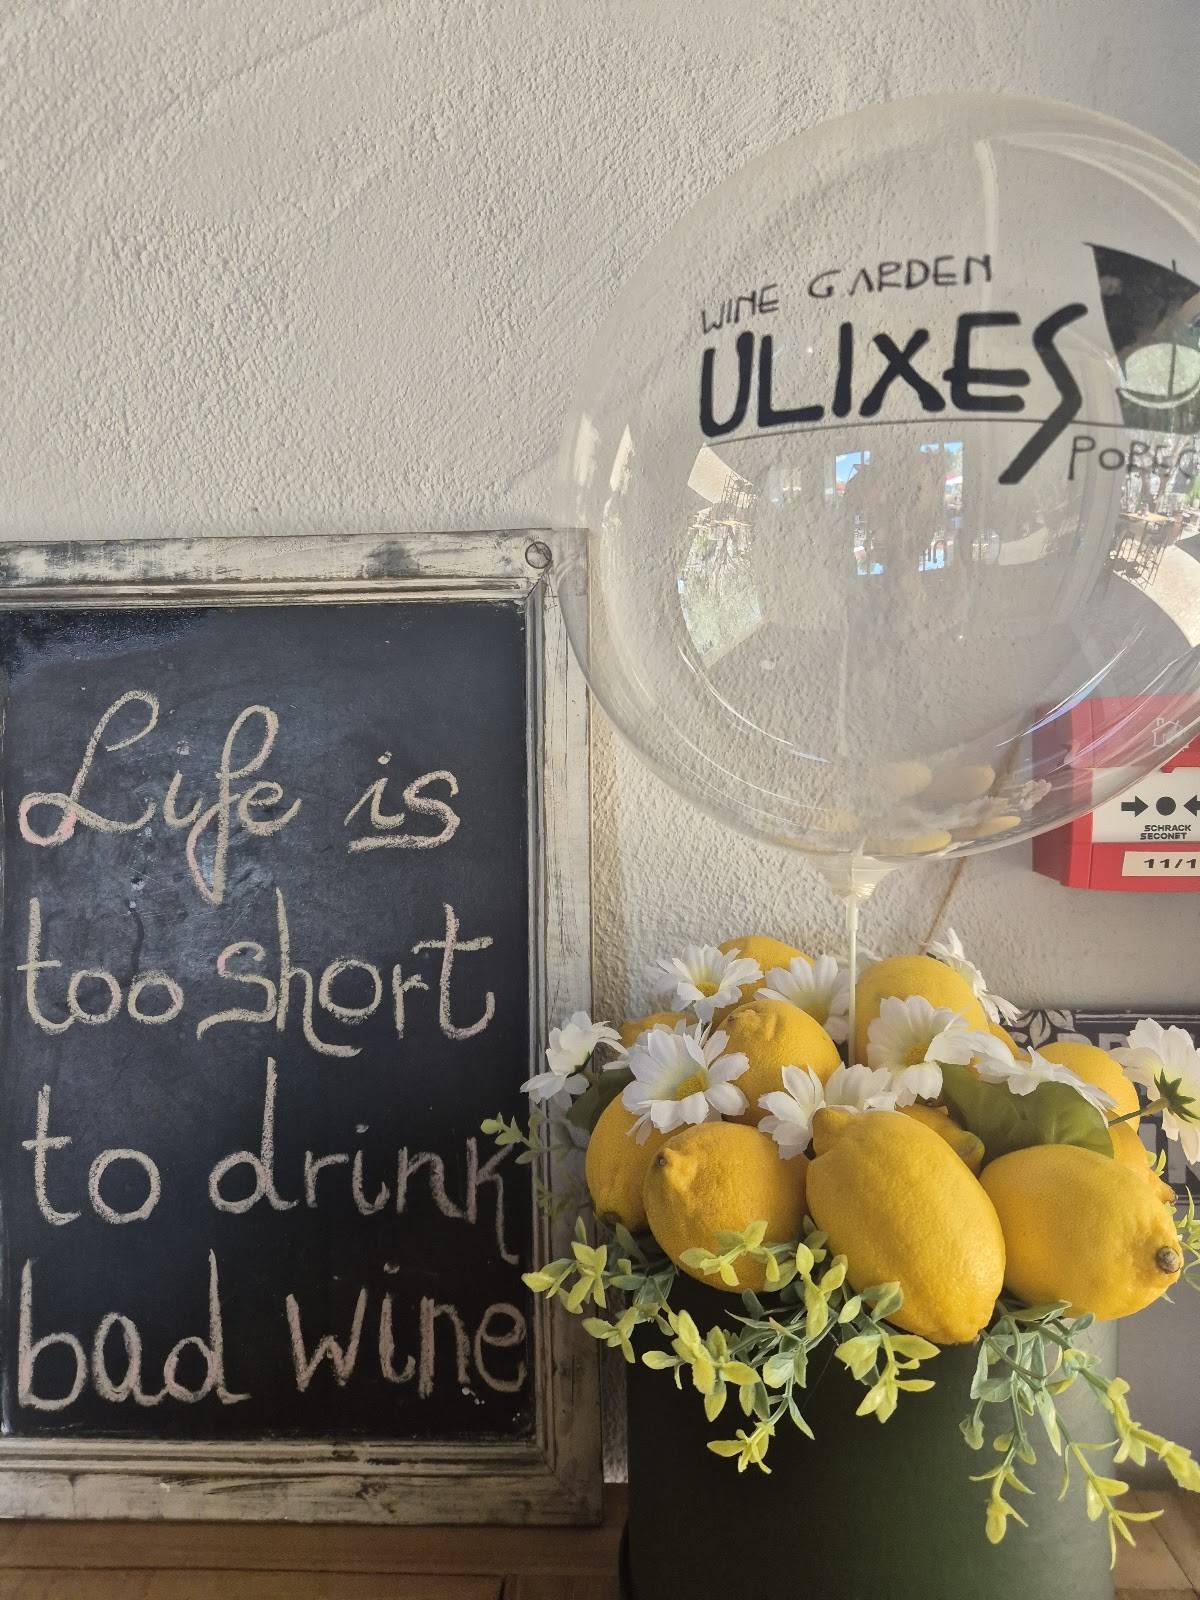 WINE GARDEN
ULIXES
POREČ
Life is
too short
to drink
bad wine
SCHRACK
SECONET